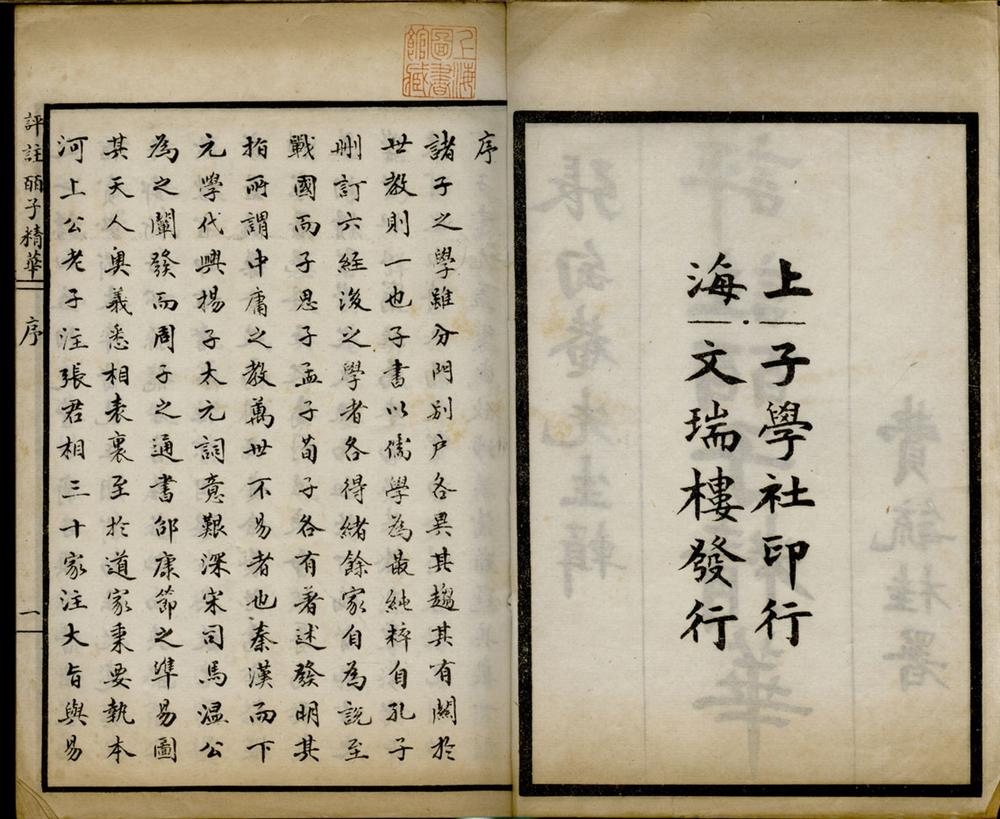 上子學社印行
海文瑞樓發行
上海
圖書
館藏
序
諸子之學雖分門别户各異其趨其有關於
世教則一也子書以儒學為最純粹自孔子
刪訂六經後之學者各得緒餘家自為説至
戰國而子思子孟子荀子各有著述發明其
指所謂中庸之教萬世不易者也秦漢而下
元學代興揚子太元詞意艱深宋司馬温公
為之闡發而周子之通書邵康節之準易圖
其天人奧義悉相表裏至於道家秉要執本
河上公老子注張君相三十家注大旨與易
評註百子精華 序 一